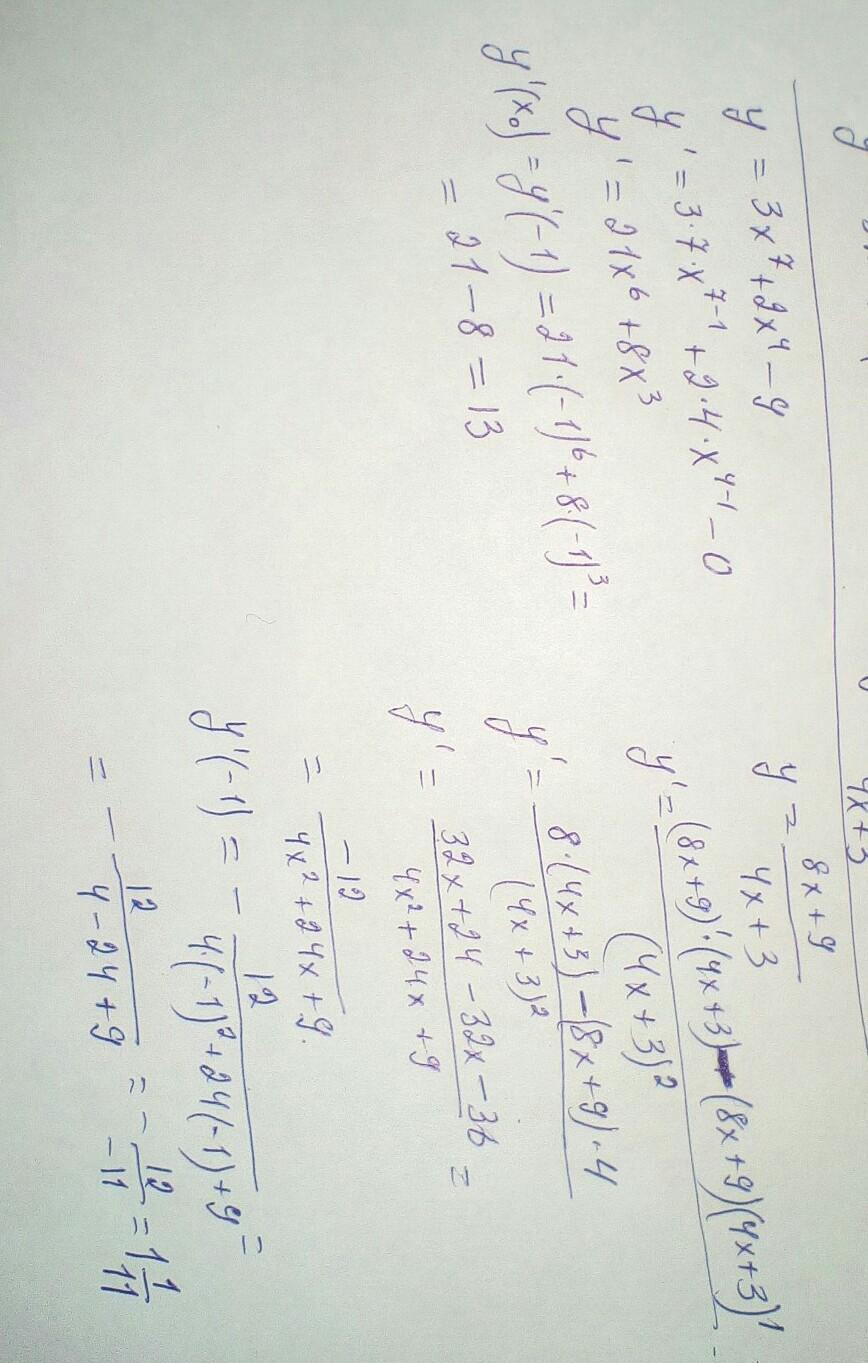 4x+3
y = 3x⁷ + 2x⁴ - 9
y' = 3·7·x⁷⁻¹ + 2·4·x⁴⁻¹ - 0
y' = 21x⁶ + 8x³
y'(x₀) = y'(-1) = 21·(-1)⁶ + 8·(-1)³ =
= 21 - 8 = 13
y = (8x+9)/(4x+3)
y' = ((8x+9)'·(4x+3) - (8x+9)(4x+3)')/(4x+3)²
y' = (8·(4x+3) - (8x+9)·4)/(4x+3)²
y' = (32x+24-32x-36)/(4x²+24x+9) =
= -12/(4x²+24x+9)
y'(-1) = - 12/(4·(-1)²+24(-1)+9) =
= - 12/(4-24+9) = - 12/-11 = 1 1/11